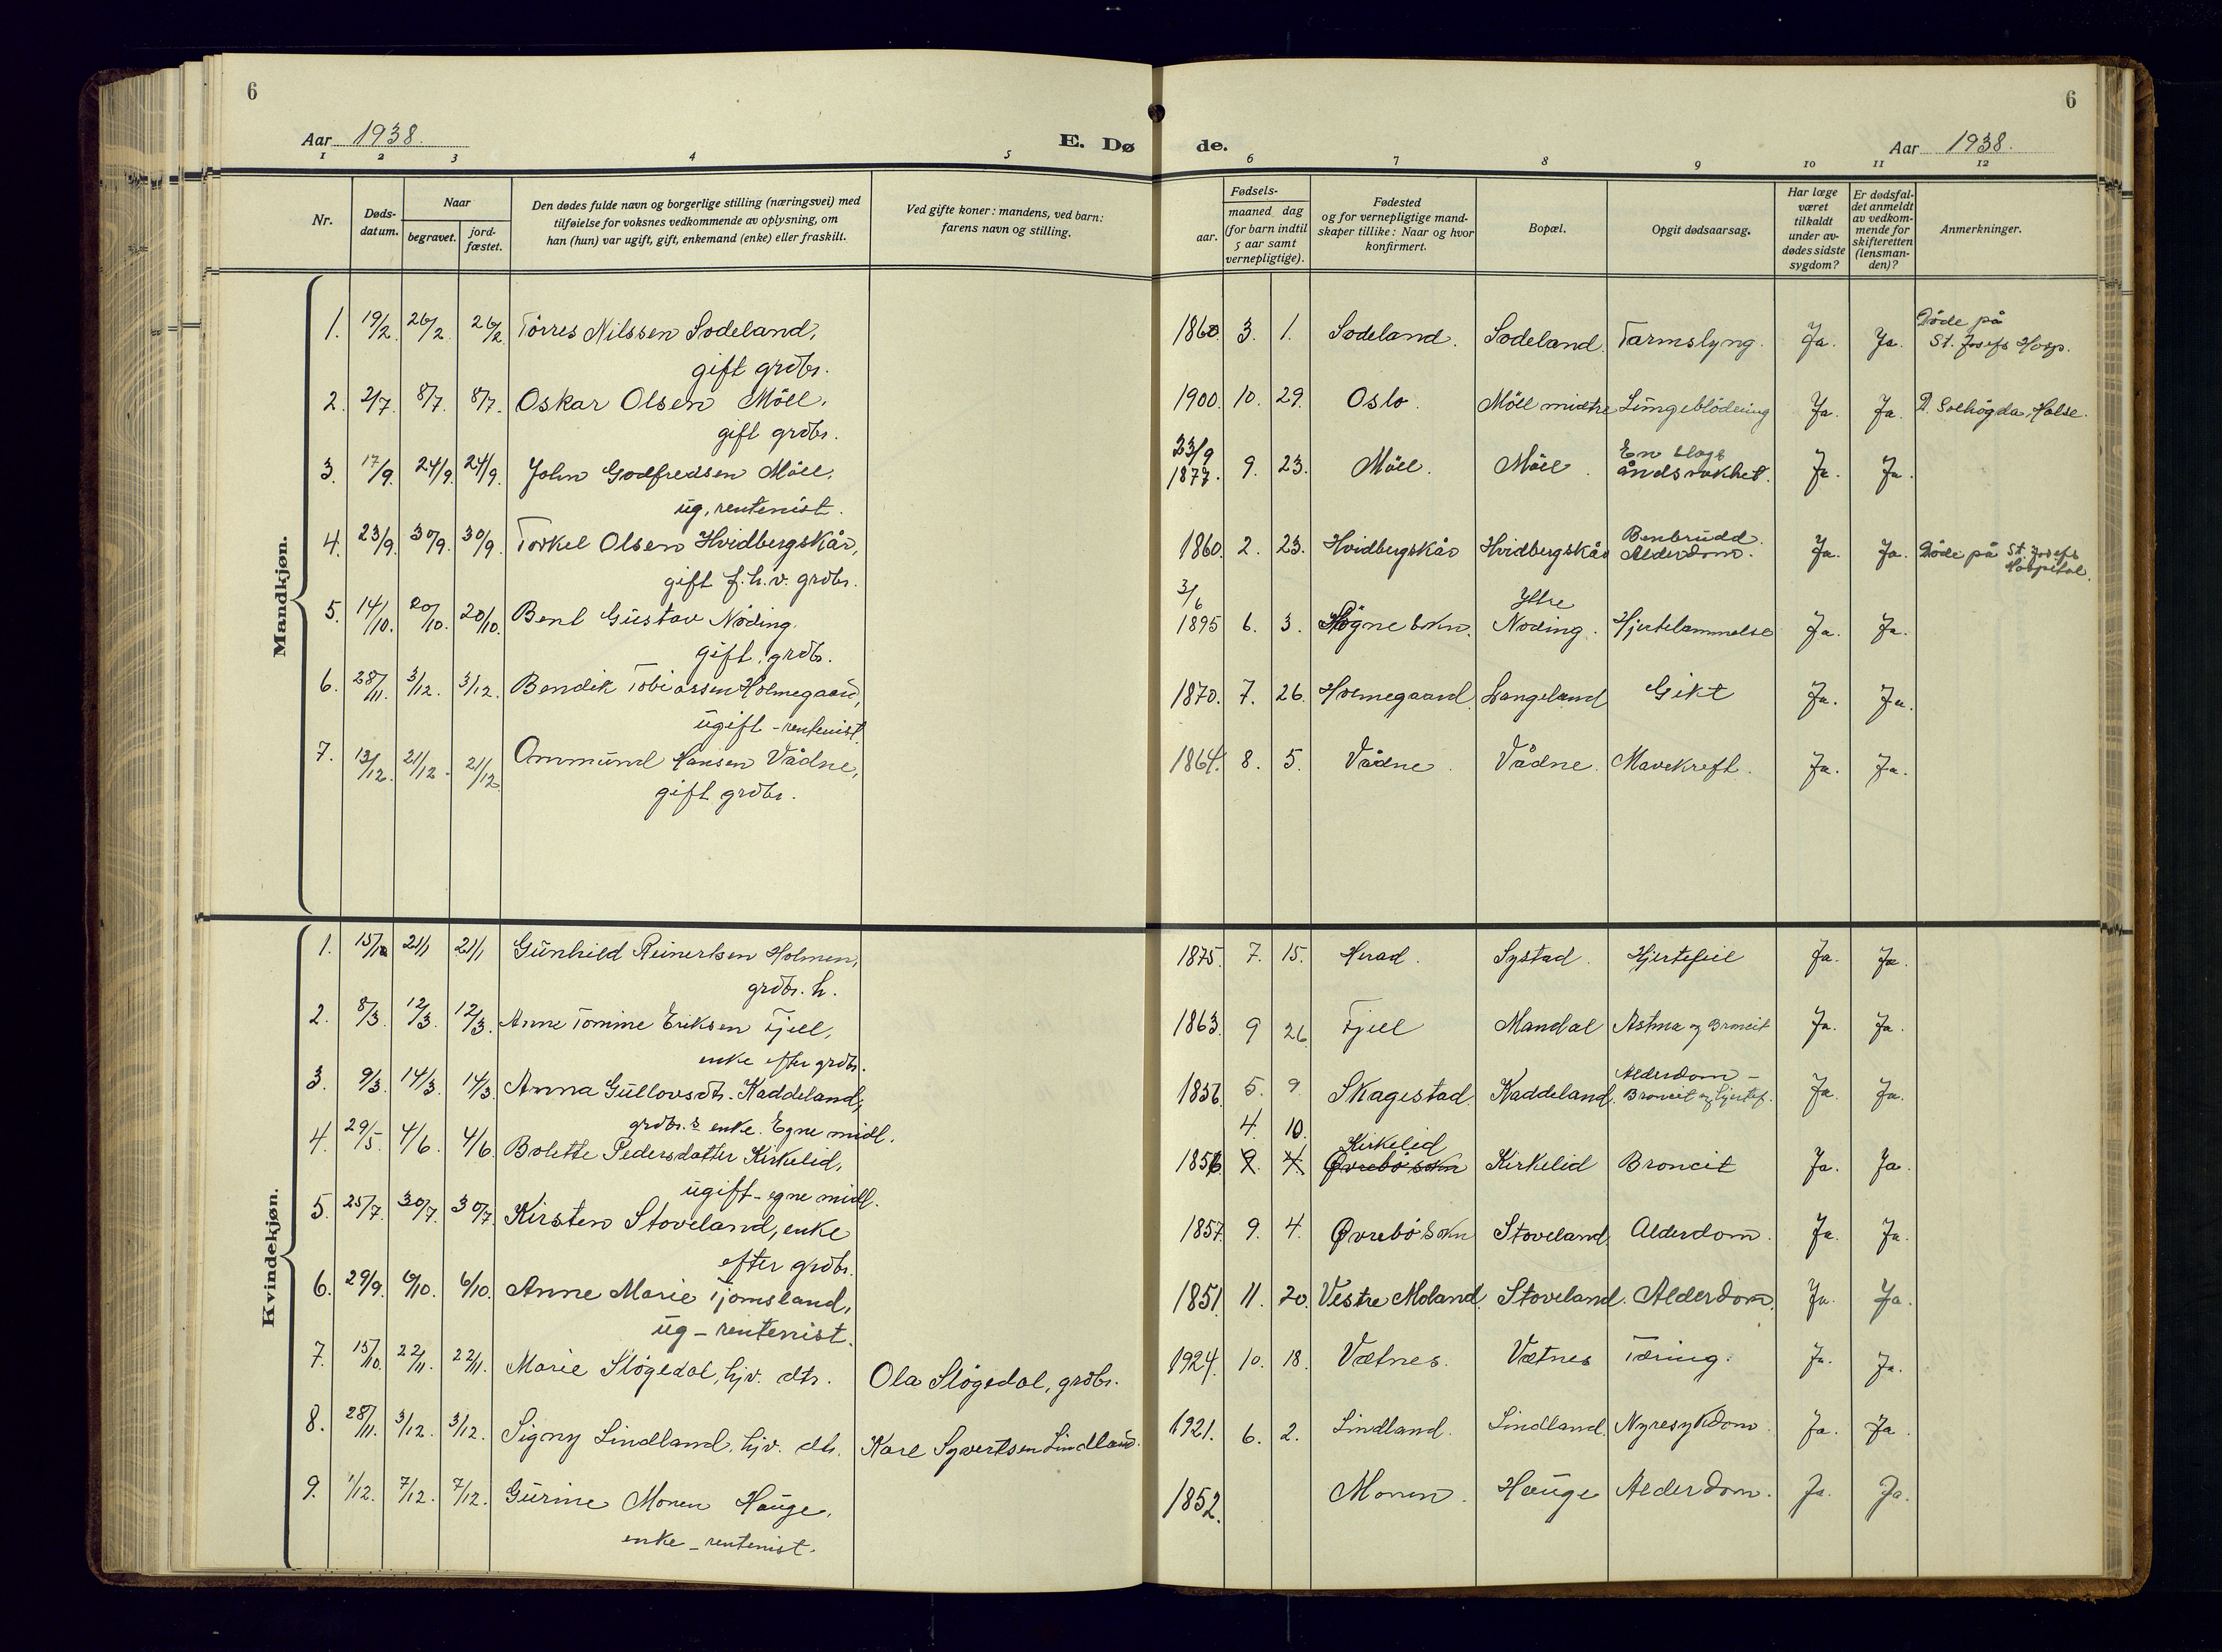 6
6
Aar 1938.
E. Dø de.
Aar 1938.
1 2 3 4 5 6 7 8 9 10 11 12
Nr.
Døds-
datum.
Naar
begravet.
jord-
fæstet.
Den dødes fulde navn og borgerlige stilling (næringsvei) med
tilføielse for voksnes vedkommende av oplysning, om
han (hun) var ugift, gift, enkemand (enke) eller fraskilt.
Ved gifte koner: mandens, ved barn:
farens navn og stilling.
Fødsels-
aar.
maaned dag
(for barn indtil
5 aar samt
vernepligtige).
Fødested
og for vernepligtige mand-
skaper tillike: Naar og hvor
konfirmert.
Bopæl.
Opgit dødsaarsag.
Har læge
været
tilkaldt
under av-
dødes sidste
sygdom?
Er dødsfal-
det anmeldt
av vedkom-
mende for
skifteretten
(lensman-
den)?
Anmerkninger.
Mandkjøn.
1. 19/2. 26/2. 26/2. Törres Nilssen Sodeland, 1860. 3. 1. Sodeland. Sodeland. Tarmslyng. Ja. Ja. Döde på
St. Josefs Hosp.
gift grdbr.
2. 2/7. 8/7. 8/7. Oskar Olsen Möll, 1900. 10. 29. Oslo. Möll midtre Lungeblödning Ja. Ja. D. Solhögda, Halse.
gift grdbr.
3. 17/9. 24/9. 24/9. John Godfredsen Möll, 23/9 1877. 9. 23. Möll. Möll. En slags
åndsvakhet. Ja. Ja.
ug, rentenist.
4. 23/9. 30/9. 30/9. Torkel Olsen Hvidbergskår, 1860. 2. 23. Hvidbergskår Hvidbergskår Benbrudd.
Alderdom. Ja. Ja. Döde på St. Josefs
Hospital.
gift f.h.v. grdbr.
5. 14/10. 20/10. 20/10. Bent Gustav Nöding. 3/6 1895 6. 3. Högne sokn. Ytre
Nöding. Hjertelammelse Ja. Ja.
gift, grdb.
6. 28/11. 3/12. 3/12. Bendik Tobiassen Holmegaard, 1870. 7. 26. Holmegaard Langeland Gikt Ja. Ja.
ugift - rentenist.
7. 13/12. 21/12. 21/12. Ommund Hansen Vådne, 1864. 8. 5. Vådne. Vådne. Mavekreft. Ja. Ja.
gift grdbr.
Kvindekjøn.
1. 15/1 21/1 21/1 Gunhild Reinertsen Holmen, 1875. 7. 15. Herad. Systad. Hjertefeil Ja. Ja.
grdbr. h.
2. 8/3. 12/3. 12/3. Anne Tomine Eriksen Fjell, 1863. 9 26. Fjell Mandal Astma og Broncit Ja. Ja.
enke efter grdbr.
3. 9/3. 14/3. 14/3. Anna Gullovsdtr. Kaddeland, 1856. 5. 9 Skagestad. Kaddeland. Alderdom -
Broncit og hjertef. Ja. Ja.
grdbr.s enke. Egne midl.
4. 29/5. 4/6. 4/6. Bolette Pedersdatter Kirkelid, 1856 4. 10. 9. 4. Kirkelid
Øvrebö sokn Kirkelid Broncit Ja. Ja.
ugift - egne midl.
5. 25/7. 30/7. 30/7. Kirsten Stoveland, enke 1857. 9. 4. Øvrebö sokn Stoveland. Alderdom. Ja. Ja.
efter grdbr.
6. 29/9. 6/10. 6/10. Anne Marie Tjomsland, 1851. 11. 20. Vestre Moland. Stoveland. Alderdom. Ja. Ja.
ug - rentenist.
7. 15/10. 22/11. 22/11. Marie Slögedal, hjv. dtr. Ola Slögedal, grdbr. 1924. 10. 18. Vatnes. Vatnes Tæring. Ja. Ja.
8. 28/11. 3/12. 3/12. Signy Lindland, hjv. dtr. Karl Syvertsen Lindland. 1921. 6. 2. Lindland. Lindland. Nyresykdom. Ja. Ja.
9. 1/12. 7/12. 7/12. Gurine Monen Hauge, 1852. Monen. Hauge Alderdom. Ja. Ja.
enke - rentenist.